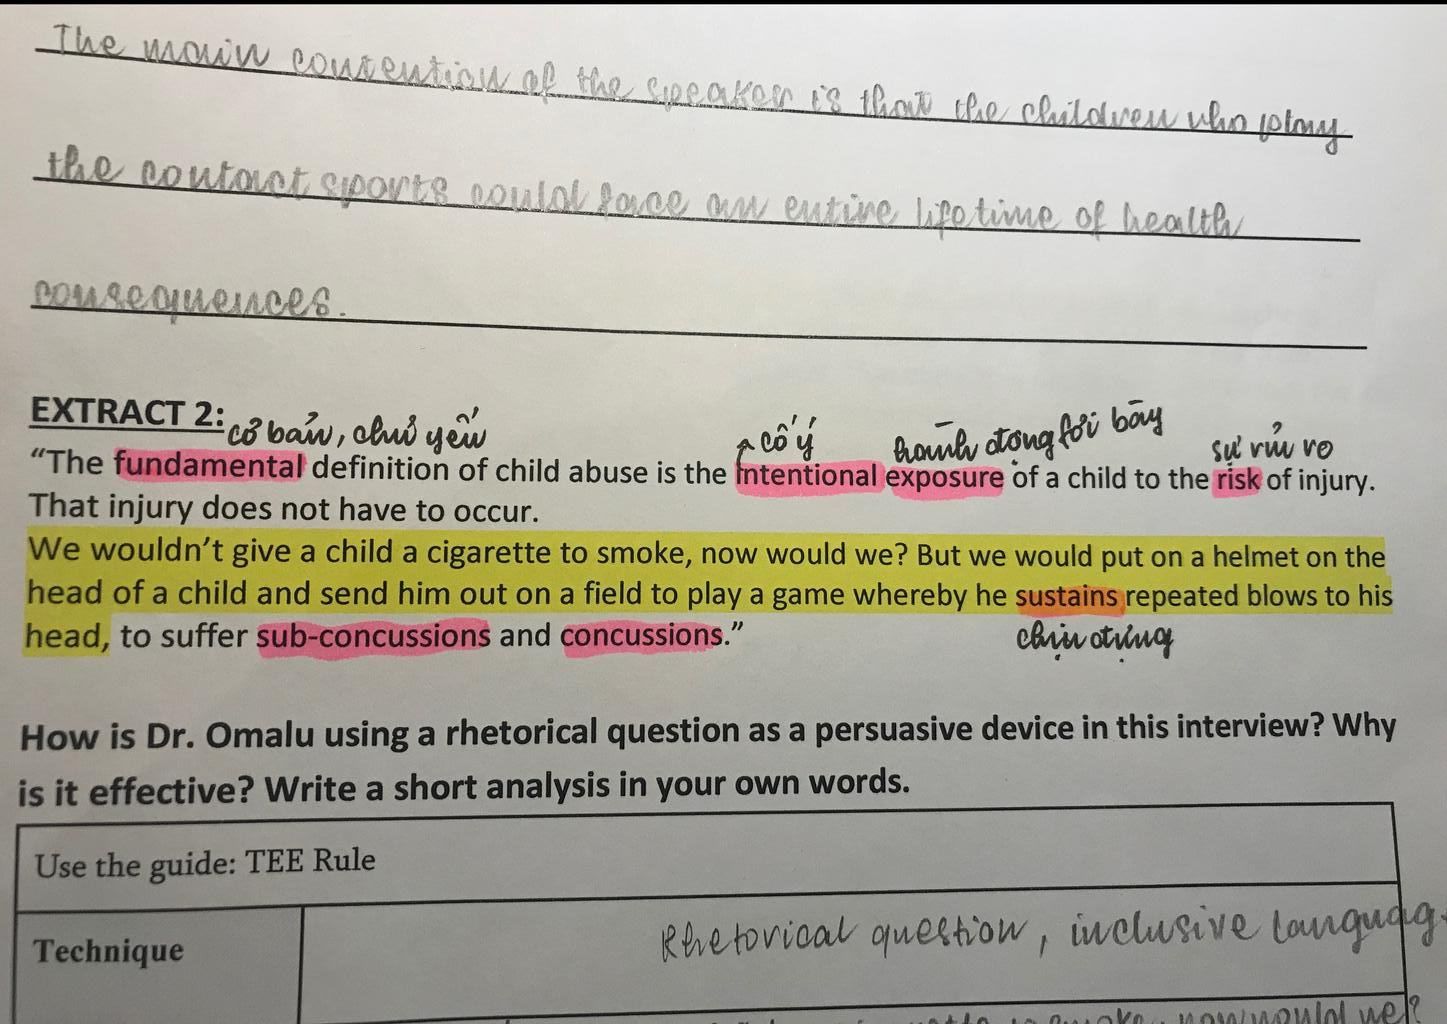 The main contention of the speaker is that the children who play
the contact sports could face an entire lifetime of health
consequences.
EXTRACT 2:
cơ bản, chủ yếu
cố ý
hành động fơi bày
sự rủi ro
“The fundamental definition of child abuse is the intentional exposure of a child to the risk of injury.
That injury does not have to occur.
We wouldn’t give a child a cigarette to smoke, now would we? But we would put on a helmet on the
head of a child and send him out on a field to play a game whereby he sustains repeated blows to his
head, to suffer sub-concussions and concussions.”
chịu đựng
How is Dr. Omalu using a rhetorical question as a persuasive device in this interview? Why
is it effective? Write a short analysis in your own words.
Use the guide: TEE Rule
Technique
Rhetorical question, inclusive languag
smoke, now would we?